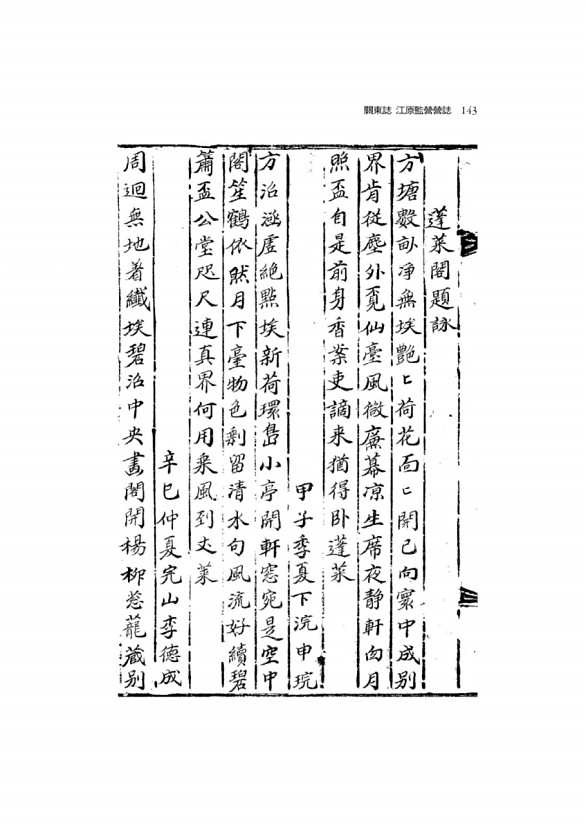 關東誌 江原監營營誌 143
蓬萊閣題詠
方塘數畝净無埃艶〻荷花面〻開已向寰中成别
界肯從塵外覓仙臺風微簾幕凉生席夜静軒向月
照盃自是前身香案吏謫来猶得卧蓬萊
甲子季夏下浣申琓
方沼涵虛絶點埃新荷環島小亭開軒窓宛是空中
閣笙鶴依然月下臺物色剩留清水句風流好續碧
盃公堂咫尺連真界何用乘風到丈萊
辛巳仲夏完山李德成
周迴無地着纖埃碧沼中央畫閣開楊柳葱蘢藏别